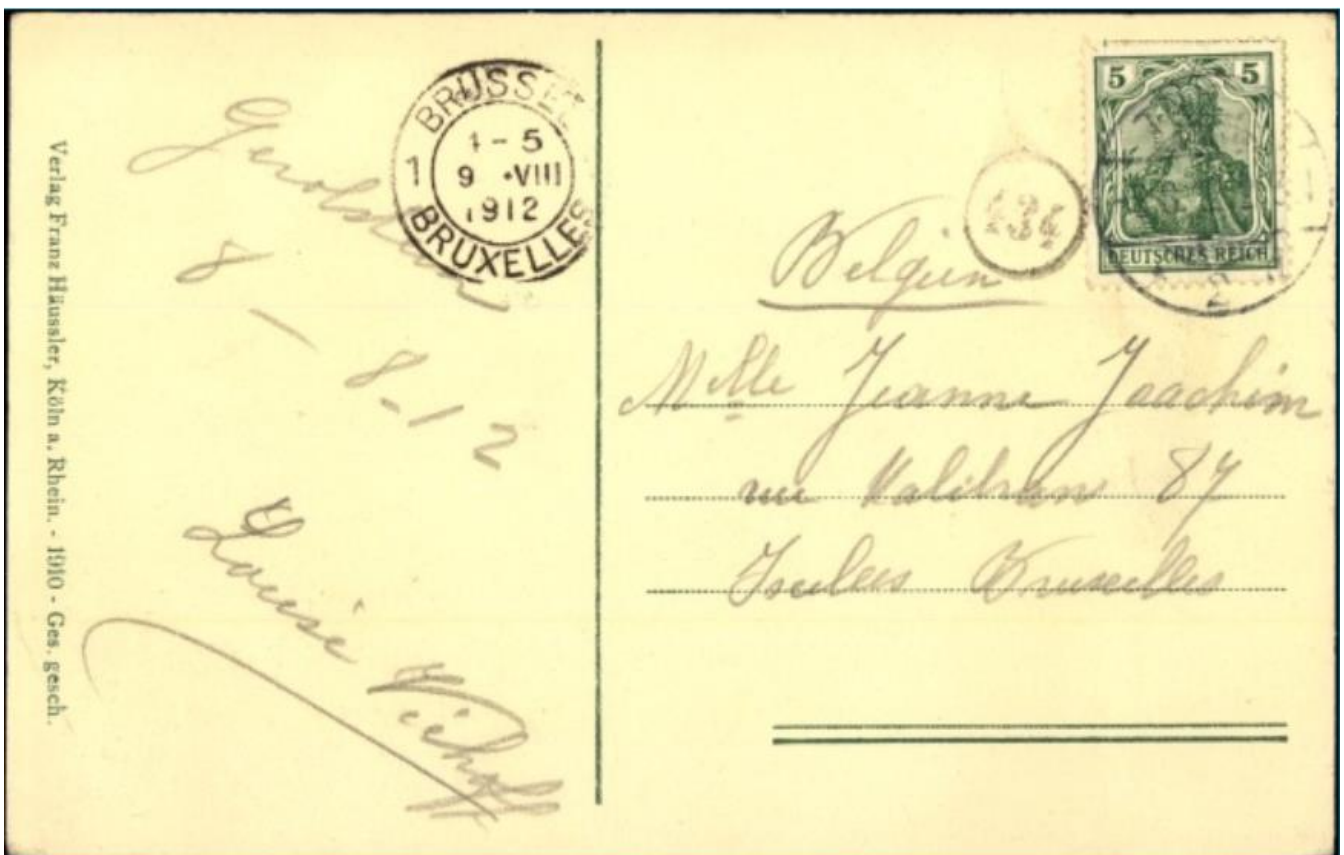 Verlag Franz Häussler, Köln a. Rhein. - 1910 - Ges. gesch.
Gerolstein
8 - 8-12
Louise Viehoff
BRÜSSEL
1
4-5
9 ·VIII
1912
BRUXELLES
5 5
DEUTSCHES REICH
Belgien
Melle Jeanne Joachim
rue Malibran 87
Ixelles Bruxelles